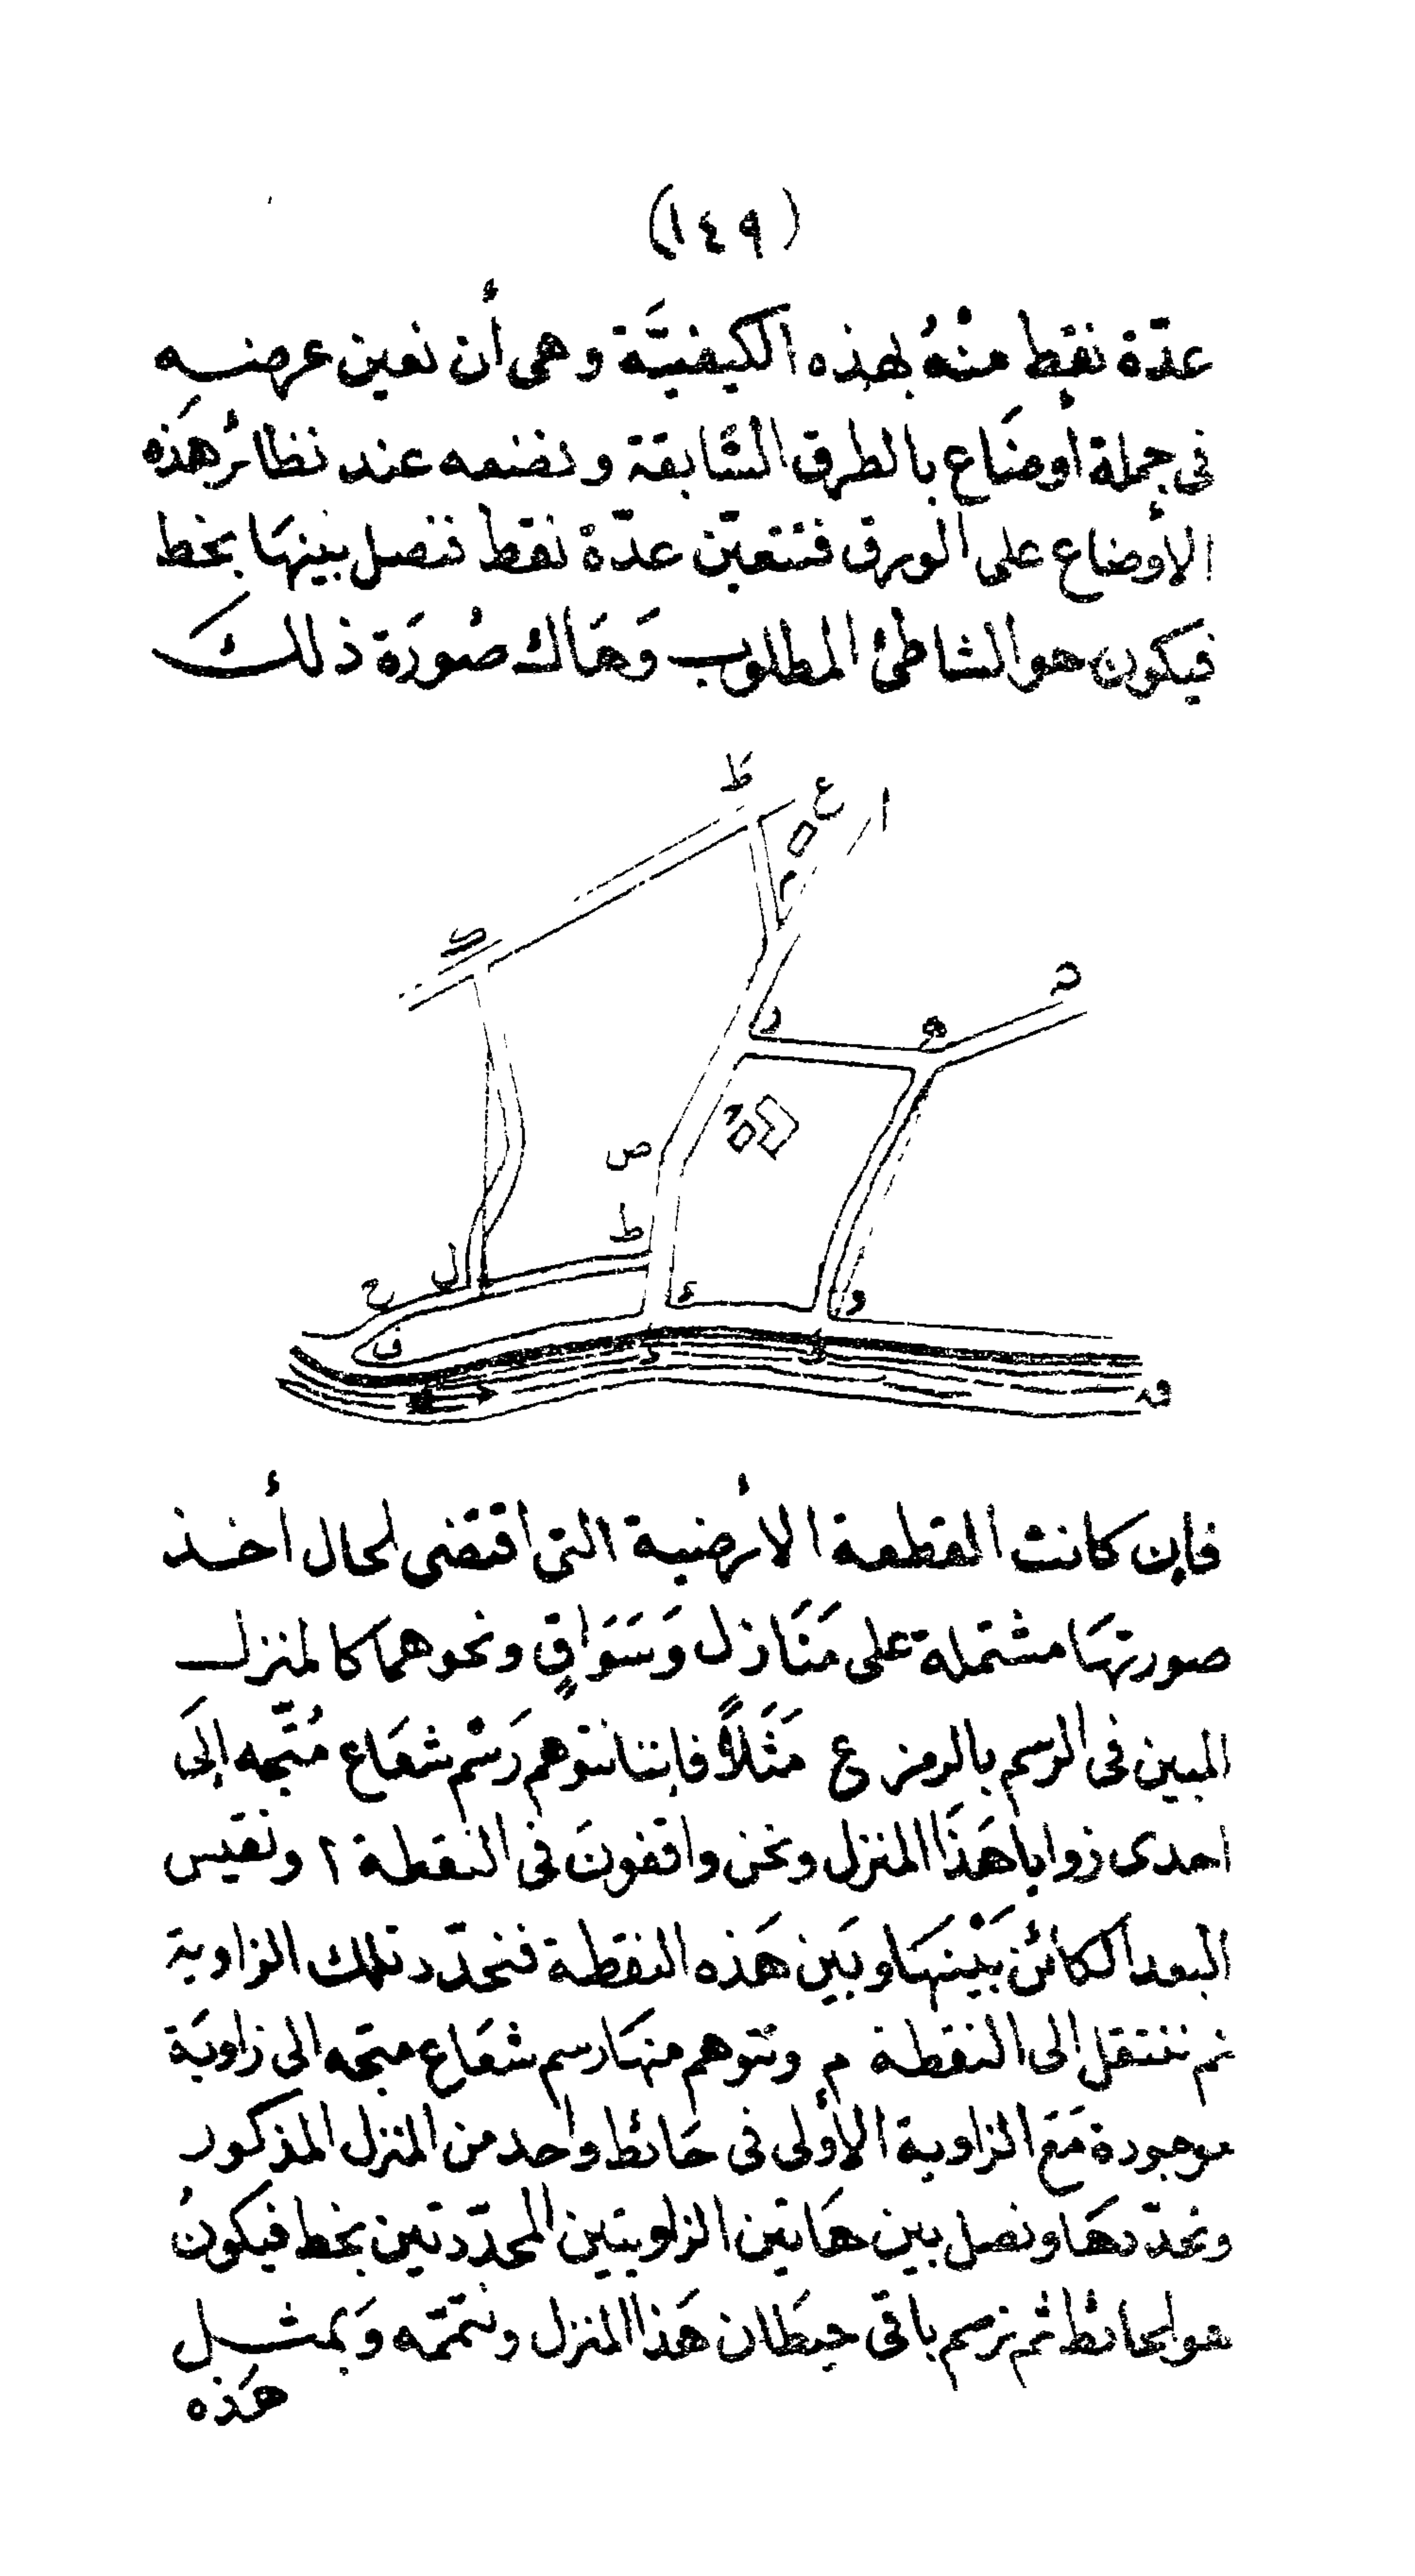 (١٤٩)
عدّة نقط منْهُ بهذه الكيفيَّة وهى أن نعين عرضه
فى جملة أوضَاع بالطرق السَّابقة ونضعه عند نظائر هَذه
الأوضاع على الورق فتتعيّن عدّة نقط نصل بينهَا بخط
فيكون هو الشاطئ المطلوب وَهَاك صُورَة ذلكَ
ط ع ا
م
ك
د ه ن
ص
ط
ل ح
ف ء و
ق
فإن كانت القطعة الأرضية التى اقتضى الحال أخذ
صورتهَا مشتملة على مَنَازل وَسَوَاقٍ ونحوهما كالمنزل
المبين فى الرسم بالرمز ع مَثَلاً فإننا نتوهم رَسْم شعَاع مُتّجه إلَى
احدى زوايا هَذَا المنزل ونحن واقفونَ فى النقطة ا ونقيس
البعد الكائن بَيْنهَا وبَين هَذه النقطة فنحدّد تلك الزاوية
ثم ننتقل الى النقطة م ونتوهم منهَا رسم شعَاع متجه الى زاويَة
موجودة مَعَ الزاوية الأولى فى حَائط واحد من المنزل المذكور
ونحدّدهَا ونصل بين هَاتين الزاويتين المحدّدتين بخط فيكونُ
هو الحائط ثم نرسم باقى حيطَان هَذا المنزل ونتممّه وَبمثل
هَذه